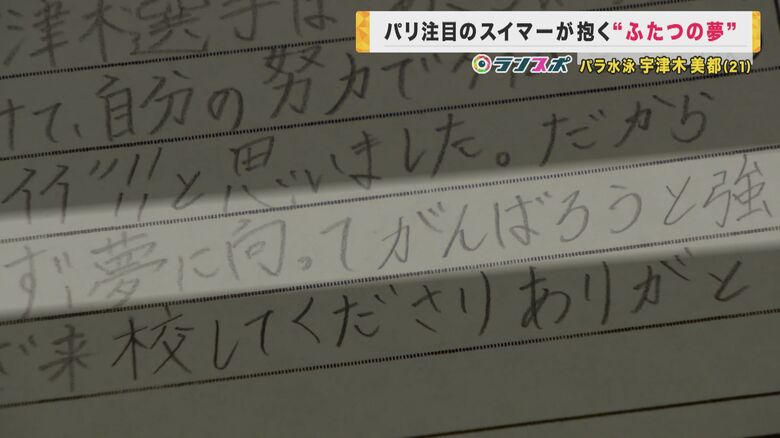 パリ注目のスイマーが抱く“ふたつの夢”
ランスポ
パラ水泳 宇津木美都(21)
津木選手は
けて、自分の努力で
と思いました。だから
ず、夢に向ってがんばろうと強
来校してくださりありがと